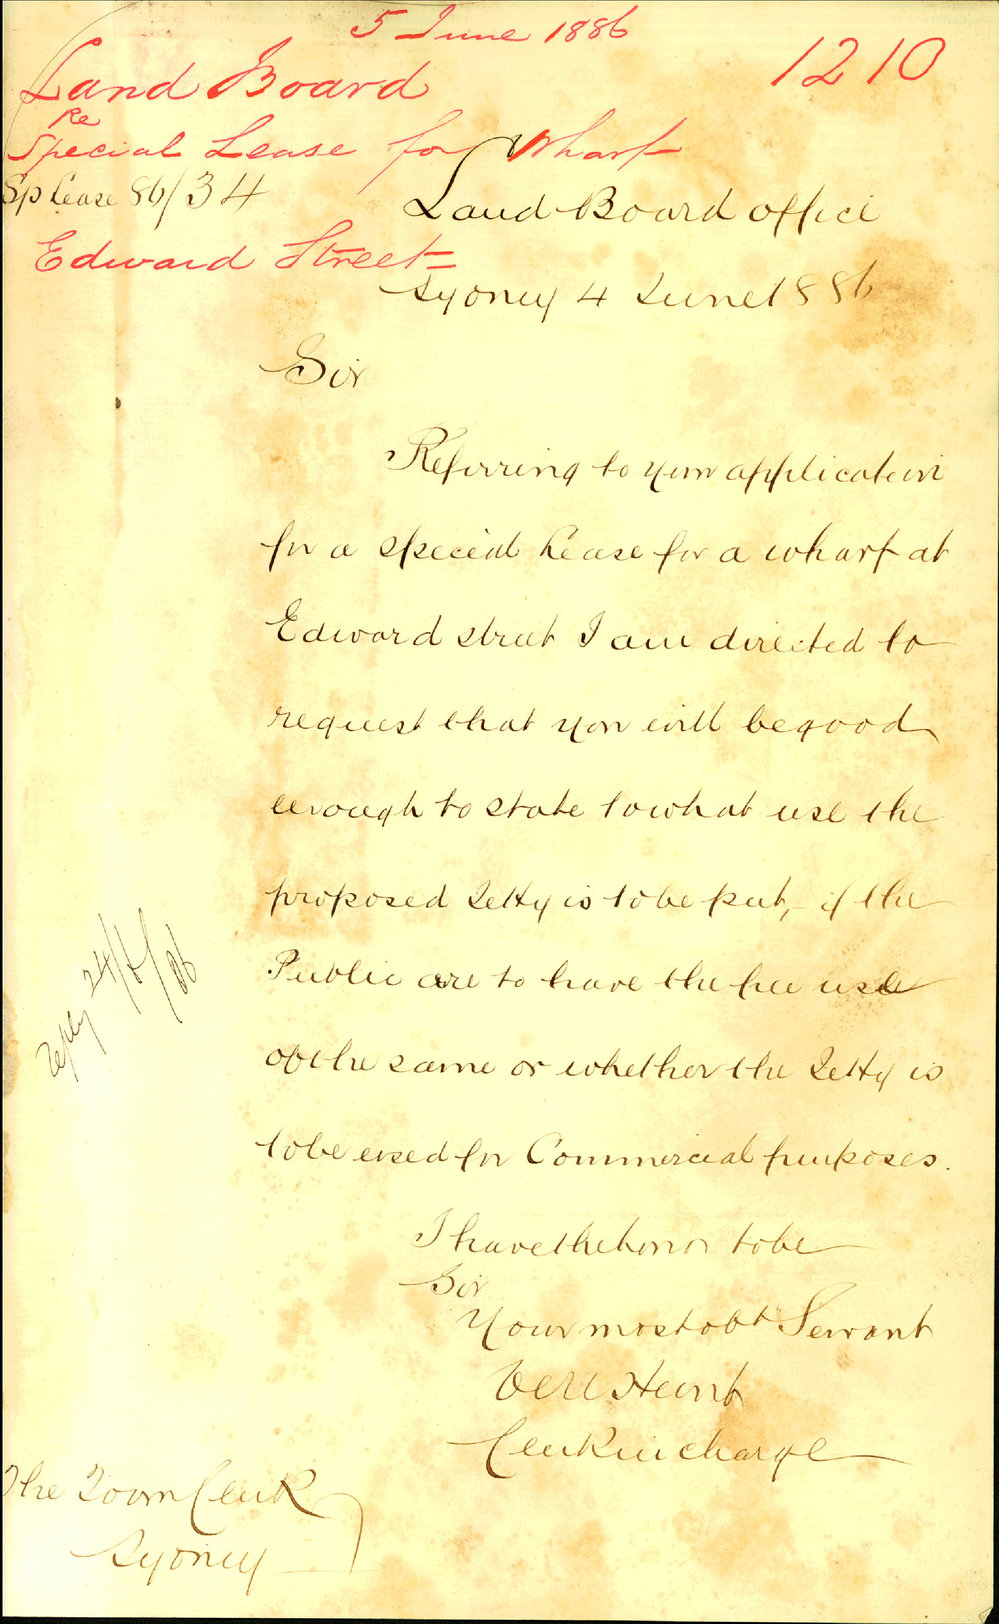 5 June 1886
1210
Land Board
Re
Special Lease for Wharf
Sp Lease 86/34
Land Board office
Edward Street
Sydney 4 June 1886
Sir
Referring to your application
for a special lease for a wharf at
Edward street I am directed to
request that you will be good
enough to state to what use the
proposed Jetty is to be put, if the
Public are to have the free use
of the same or whether the Jetty is
to be used for Commercial purposes.
I have the honor to be
Sir
Your most obt Servant
Hunt
Clerk in charge
The Town Clerk
Sydney
reply 24/